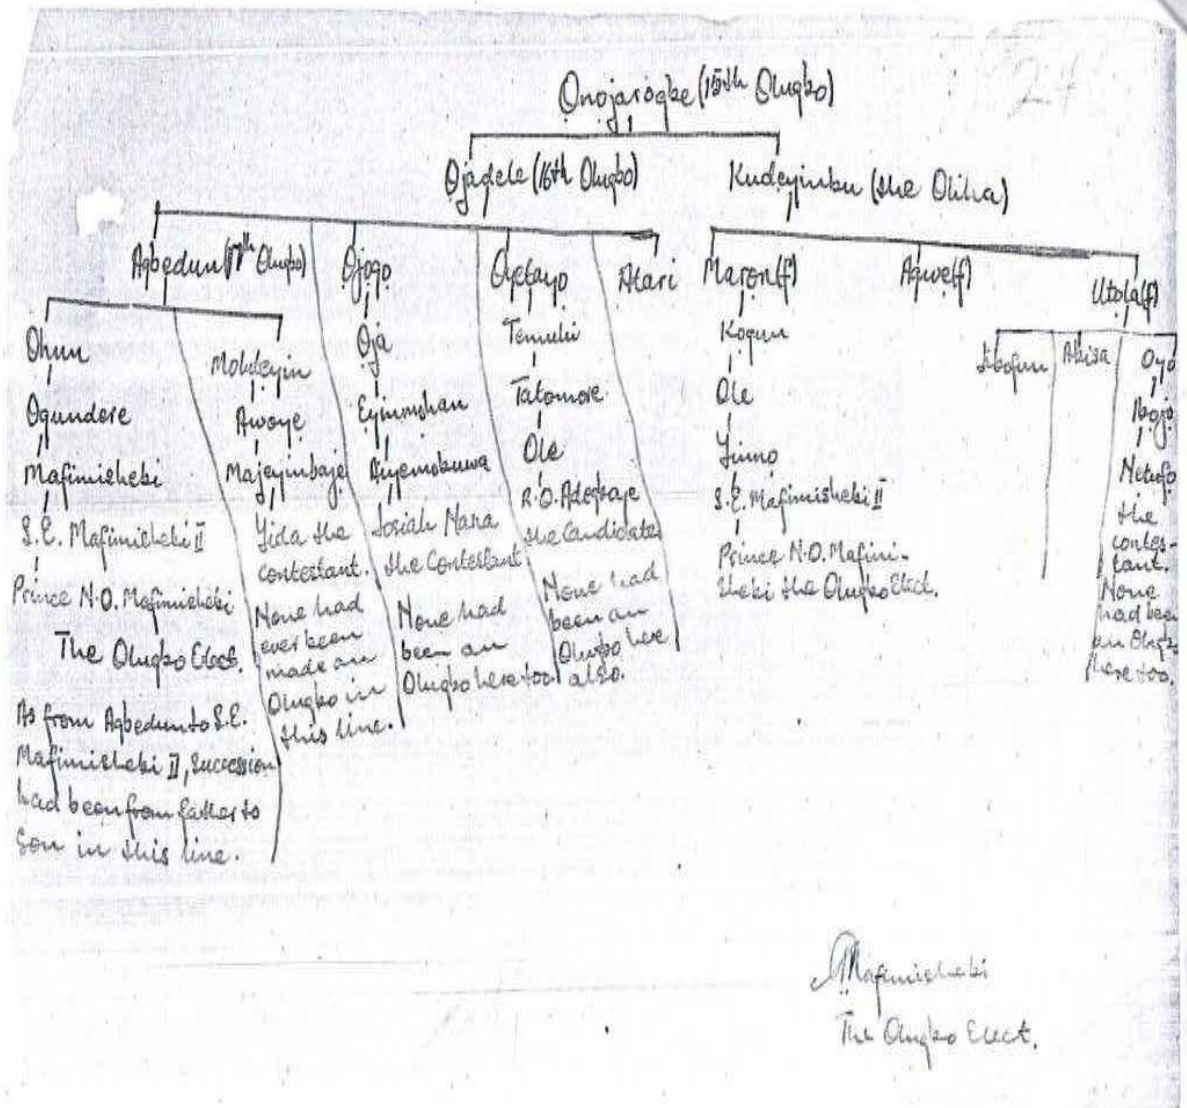 24
Onojarogbe (15th Olugbo)
Ojadele (16th Olugbo)
Kudeyinbu (the Oliha)
Agbedun (17th Olugbo)
Ojogo
Oyetayo
Atari
Maron (f)
Agwe (f)
Utola (f)
Ohun
Ogundere
Mafimishebi
S.E. Mafimishebi II
Prince N.O. Mafimishebi
The Olugbo Elect.
As from Agbedun to S.E.
Mafimishebi II, Succession
had been from father to
Son in this line.
Moludeyin
Awoye
Majeyinbaje
Yida the
contestant.
None had
ever been
made an
Olugbo in
this line.
Oja
Eyinmishan
Josiah Nana
the Contestant
None had
been an
Olugbo here too
Temulu
Talomore
Ole
R.O. Adegbaje
the Candidate
None had
been an
Olugbo here
also.
Kogun
Ole
Yinno
S.E. Mafimishebi II
Prince N.O. Mafimi-
shebi the Olugbo Elect.
Abisa
Oyo
Netufo
the
contes-
tant.
None
had been
an Olugb
here too.
Mafimishebi
The Olugbo Elect.